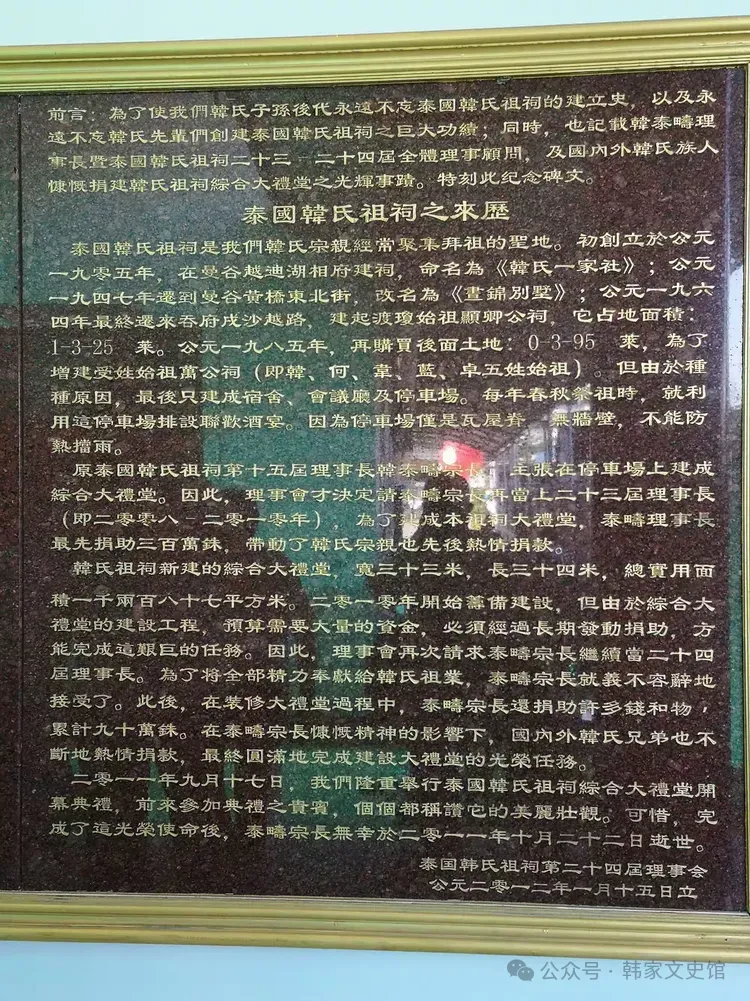 前言：為了使我們韓氏子孫後代永遠不忘泰國韓氏祖祠的建立史，以及永
遠不忘韓氏先輩們創建泰國韓氏祖祠之巨大功績；同時，也記載韓泰疇理
事長暨泰國韓氏祖祠二十三－二十四屆全體理事顧問，及國內外韓氏族人
慷慨捐建韓氏祖祠綜合大禮堂之光輝事蹟。特刻此纪念碑文。
泰國韓氏祖祠之來歷
泰國韓氏祖祠是我們韓氏宗親經常聚集拜祖的聖地。初創立於公元
一九零五年，在曼谷越迪湖相府建祠，命名為《韓氏一家社》；公元
一九四七年遷到曼谷黃橋東北街，改名為《晝錦別墅》；公元一九六
四年最終遷來吞府戍沙越路，建起渡瓊始祖顯卿公祠，它占地面積：
1-3-25 萊。公元一九八五年，再購買後面土地：0-3-95 萊，為了
增建受姓始祖萬公祠（即韓、何、韋、藍、卓五姓始祖）。但由於種
種原因，最後只建成宿舍、會議廳及停車場。每年春秋祭祖時，就利
用這停車場排設聯歡酒宴。因為停車場僅是瓦屋脊，無牆壁，不能防
熱擋雨。
原泰國韓氏祖祠第十五屆理事長韓泰疇宗長，主張在停車場上建成
綜合大禮堂。因此，理事會才決定請泰疇宗長再當上二十三屆理事長
（即二零零八－二零一零年），為了建成本祖祠大禮堂，泰疇理事長
最先捐助三百萬銖，帶動了韓氏宗親也先後熱情捐款。
韓氏祖祠新建的綜合大禮堂，寬三十三米，長三十四米，總實用面
積一千兩百八十七平方米。二零一零年開始籌備建設，但由於綜合大
禮堂的建設工程，預算需要大量的資金，必須經過長期發動捐助，方
能完成這艱巨的任務。因此，理事會再次請求泰疇宗長繼續當二十四
屆理事長。為了將全部精力奉獻給韓氏祖業，泰疇宗長就義不容辭地
接受了。此後，在裝修大禮堂過程中，泰疇宗長還捐助許多錢和物，
累計九十萬銖。在泰疇宗長慷慨精神的影響下，國內外韓氏兄弟也不
斷地熱情捐款，最終圓滿地完成建設大禮堂的光榮任務。
二零一一年九月十七日，我們隆重舉行泰國韓氏祖祠綜合大禮堂開
幕典禮，前來參加典禮之貴賓，個個都稱讚它的美麗壯觀。可惜，完
成了這光榮使命後，泰疇宗長無幸於二零一一年十月二十二日逝世。
泰国韩氏祖祠第二十四屆理事会
公元二零一二年一月十五日立
公众号·韩家文史馆